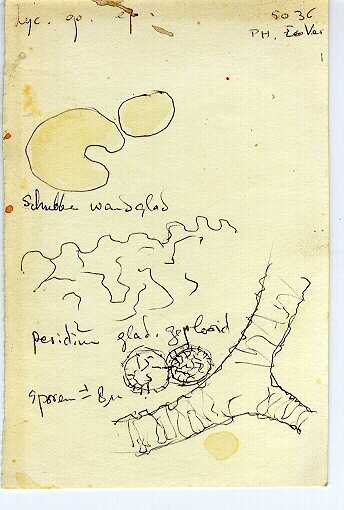 Lyc. ep.
5036
PH.
Schubbe wand glad
peridium glad. geplooid
sporen ± 8 µ